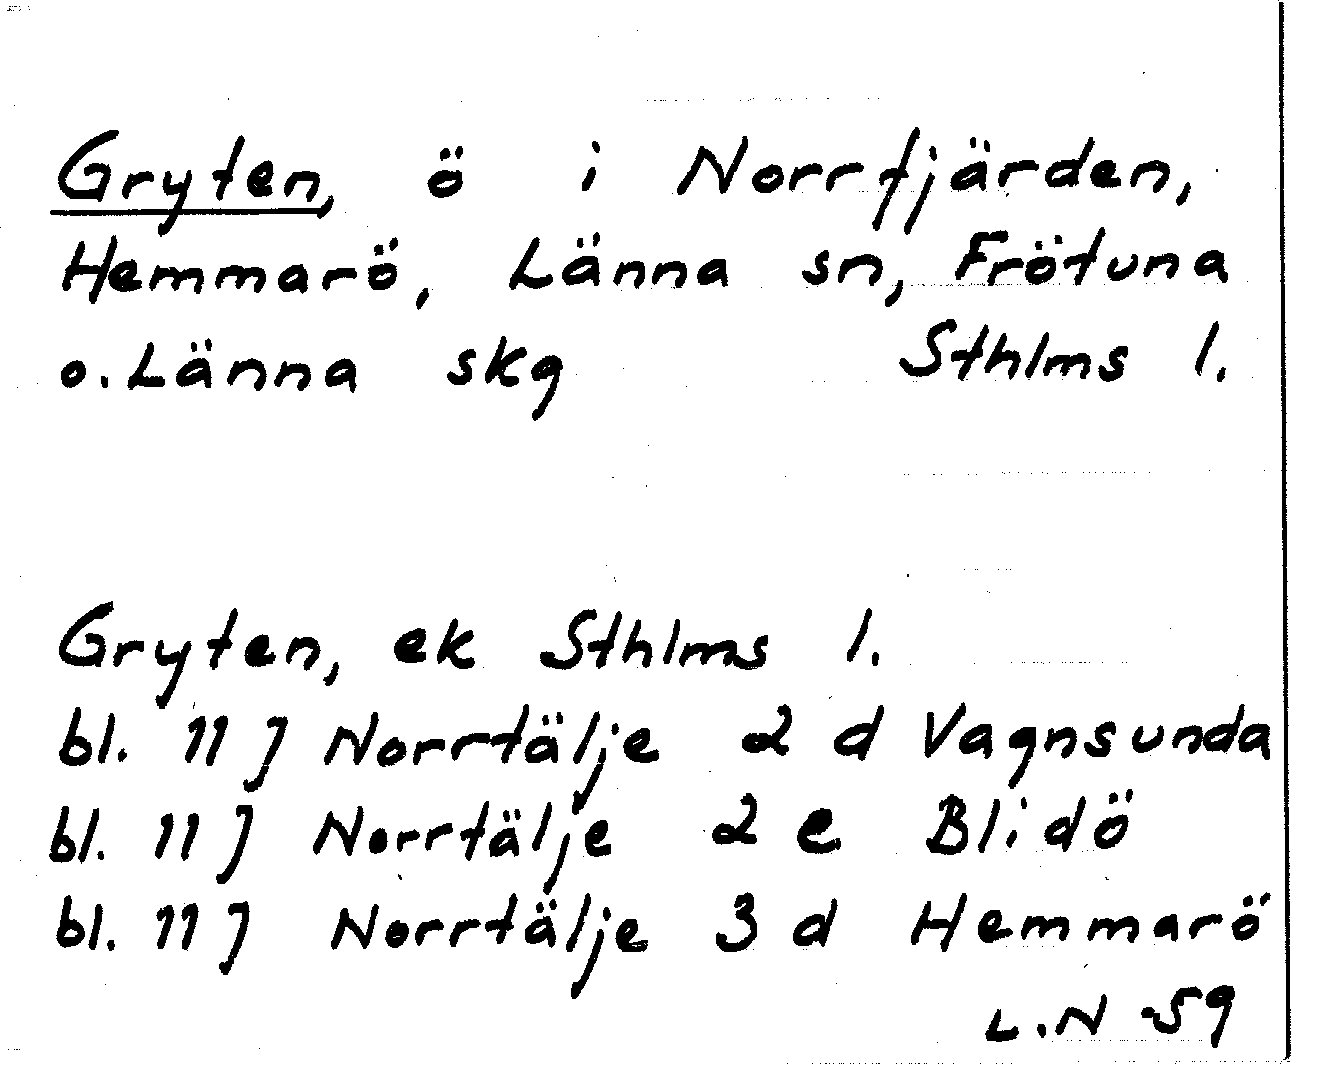 Gryten, ö i Norrfjärden,
Hemmarö, Länna sn, Frötuna
o. Länna skg Sthlms l.
Gryten, ek Sthlms l.
bl. 11 J Norrtälje 2 d Vagnsunda
bl. 11 J Norrtälje 2 e Blidö
bl. 11 J Norrtälje 3 d Hemmarö
L.N -59